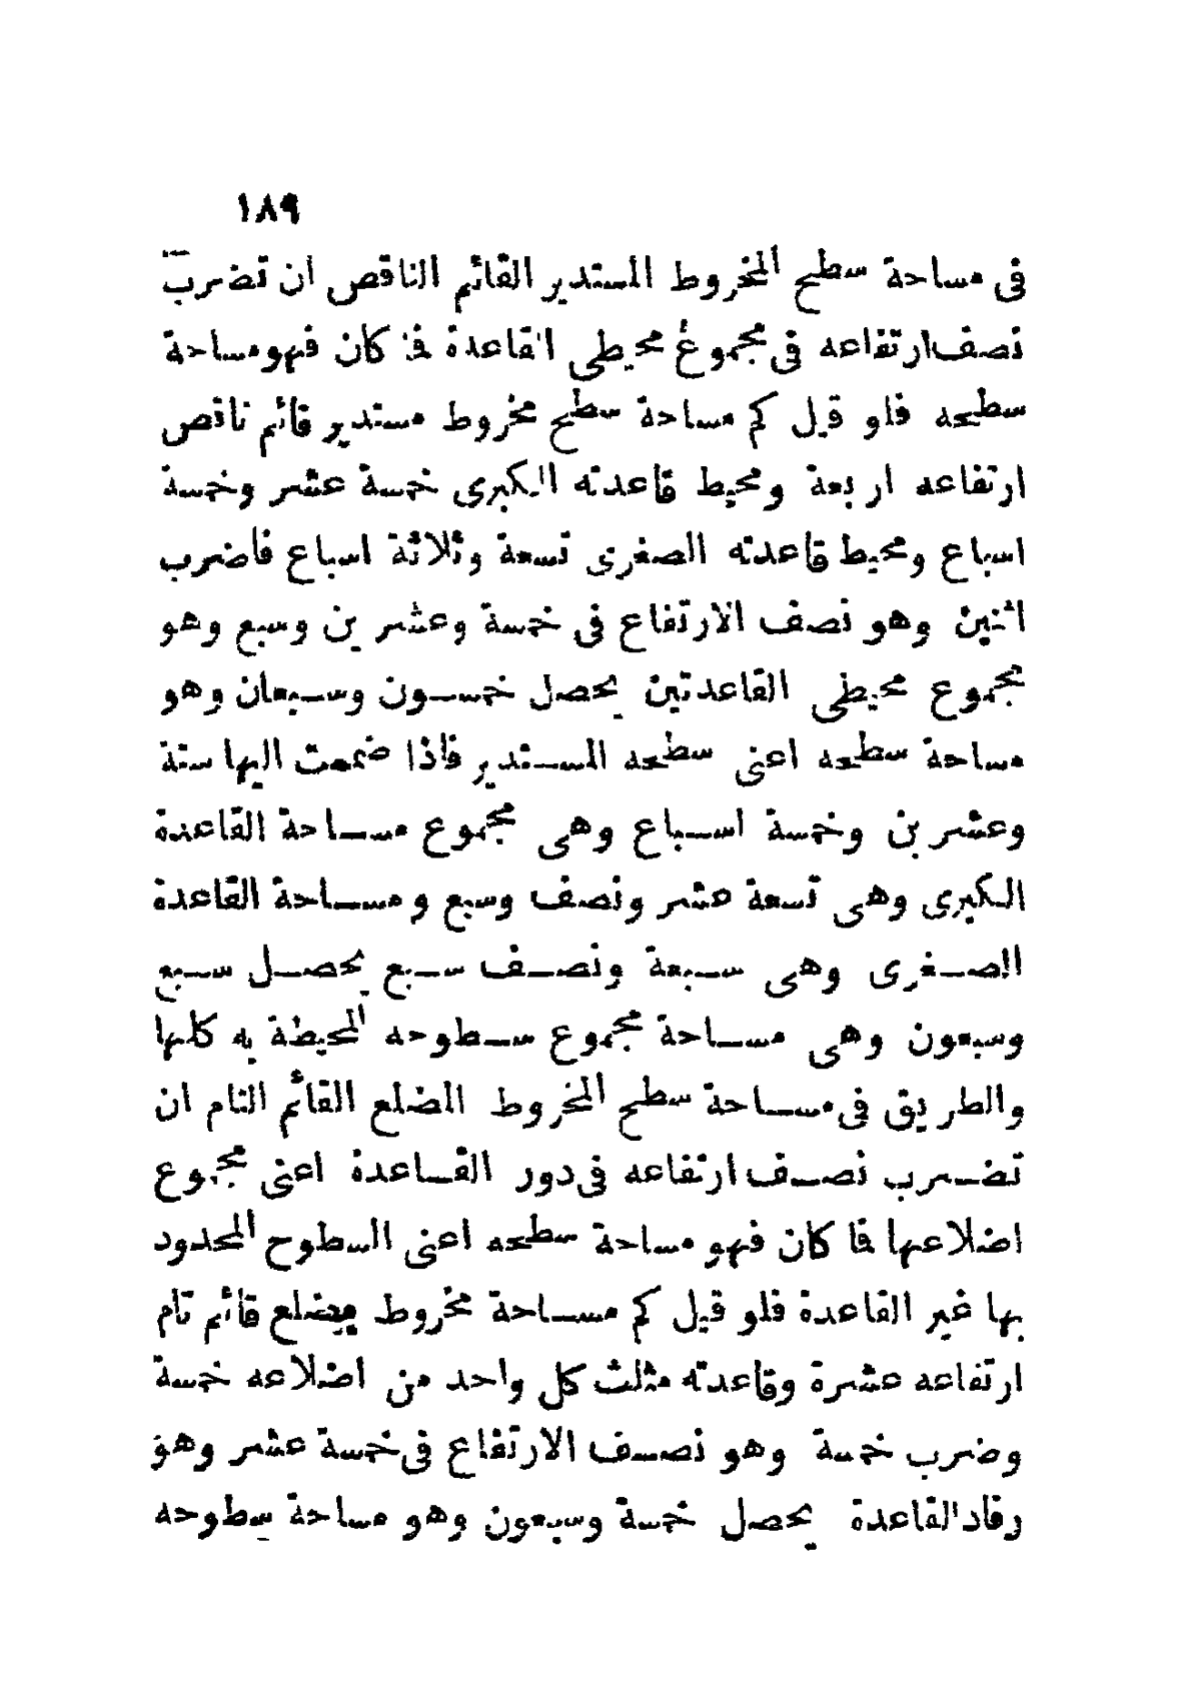 ١٨٩
فى مساحة سطح المخروط المستدير القائم الناقص ان تضرب
نصف ارتفاعه فى مجموع محيطى القاعدة فما كان فهو مساحة
سطحه فلو قيل كم مساحة سطح مخروط مستدير قائم ناقص
ارتفاعه اربعة ومحيط قاعدته الكبرى خمسة عشر وخمسة
اسباع ومحيط قاعدته الصغرى تسعة وثلاثة اسباع فأضرب
اثنين وهو نصف الارتفاع فى خمسة وعشرين وسبع وهو
مجموع محيطى القاعدتين يحصل خمسون وسبعان وهو
مساحة سطحه اعنى سطحه المستدير فاذا ضممت اليها ستة
وعشرين وخمسة اسباع وهى مجموع مساحة القاعدة
الكبرى وهى تسعة عشر ونصف وسبع ومساحة القاعدة
الصغرى وهى سبعة ونصف سبع يحصل سبع
وسبعون وهى مساحة مجموع سطوحه المحيطة به كلها
والطريق فى مساحة سطح المخروط المضلع القائم التام ان
تضرب نصف ارتفاعه فى دور القاعدة اعنى مجموع
اضلاعها فما كان فهو مساحة سطحه اعنى السطوح المحدود
بها غير القاعدة فلو قيل كم مساحة مخروط مضلع قائم تام
ارتفاعه عشرة وقاعدته مثلث كل واحد من اضلاعه خمسة
وضرب خمسة وهو نصف الارتفاع فى خمسة عشر وهو
القاعدة يحصل خمسة وسبعون وهو مساحة سطوحه